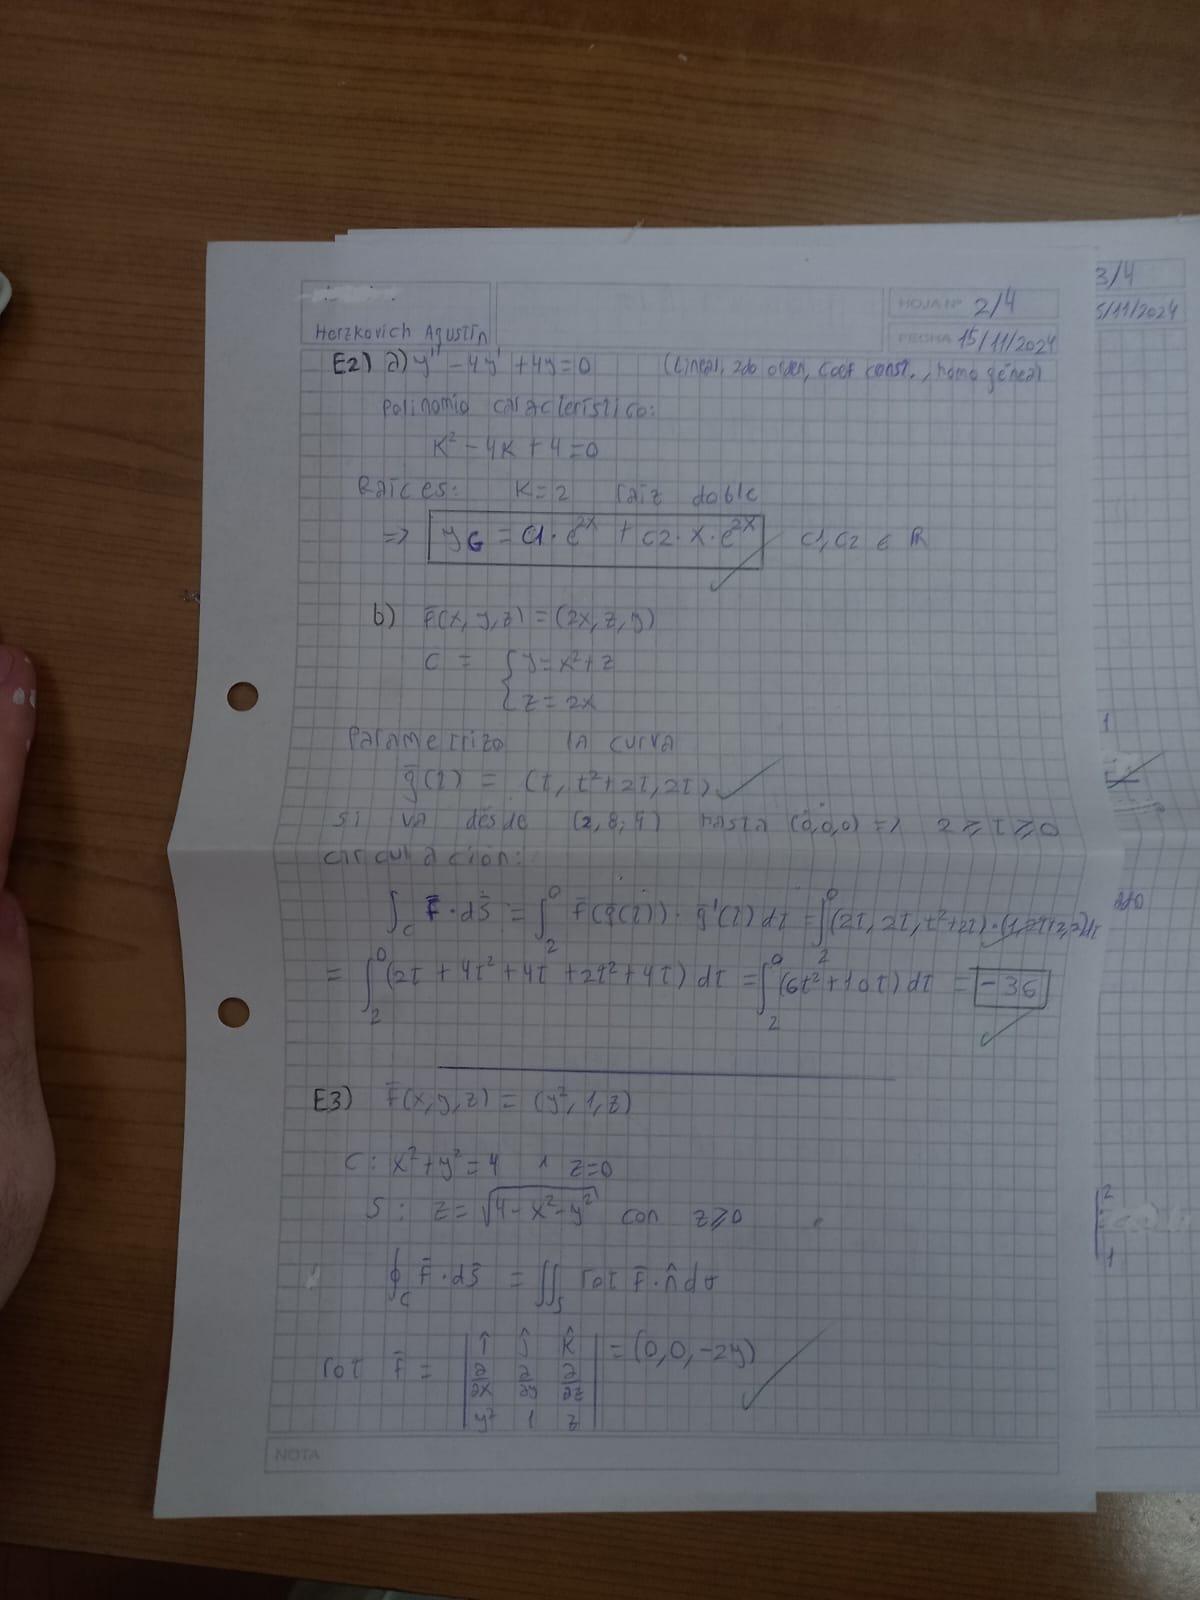 HOJA Nº 2/4
Herzkovich Agustín
FECHA 15/11/2024
E2) a) y'' - 4y' + 4y = 0 (Lineal, 2do orden, coef const., homogénea)
Polinomio característico:
K² - 4K + 4 = 0
Raíces: K = 2 raiz doble
=> yG = C1·e^2x + C2·x·e^2x C1, C2 ∈ R
b) F̄(x, y, z) = (2x, z, y)
C = { y = x² + z
z = 2x
Parametrizo la curva
ḡ(t) = (t, t² + 2t, 2t)
Si va desde (2, 8, 4) hasta (0,0,0) => 2 ≥ t ≥ 0
Circulación:
∫_C F̄·ds̄ = ∫_2^0 F̄(ḡ(t))·ḡ'(t) dt = ∫_2^0 (2t, 2t, t²+2t)·(1, 2t+2, 2)dt
= ∫_2^0 (2t + 4t² + 4t + 2t² + 4t) dt = ∫_2^0 (6t² + 10t) dt = -36
E3) F̄(x, y, z) = (y², 1, z)
C: x² + y² = 4 ∧ z = 0
S: z = √(4 - x² - y²) con z ≥ 0
∮_C F̄·ds̄ = ∬_S rot F̄·n̂ dσ
rot F̄ = | î ĵ k̂ | = (0, 0, -2y)
∂/∂x ∂/∂y ∂/∂z
y² 1 z
NOTA
3/4
5/11/2024
1
2
1